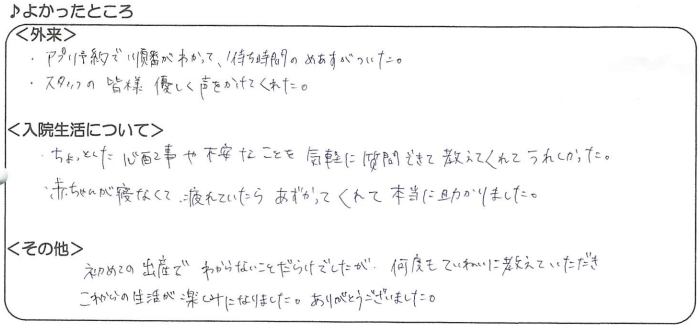 ♪よかったところ
<外来>
・アプリ予約で順番がわかって、待ち時間のめあすがついた。
・スタッフの皆様 優しく声をかけてくれた。
<入院生活について>
・ちょっとした心配事や不安なことを気軽に質問できて教えてくれてうれしかった。
・赤ちゃんが寝なくて、疲れていたらあずかってくれて本当に助かりました。
<その他>
初めての出産でわからないことだらけでしたが、何度もていねいに教えていただき
これからの生活が楽しみになりました。ありがとうございました。